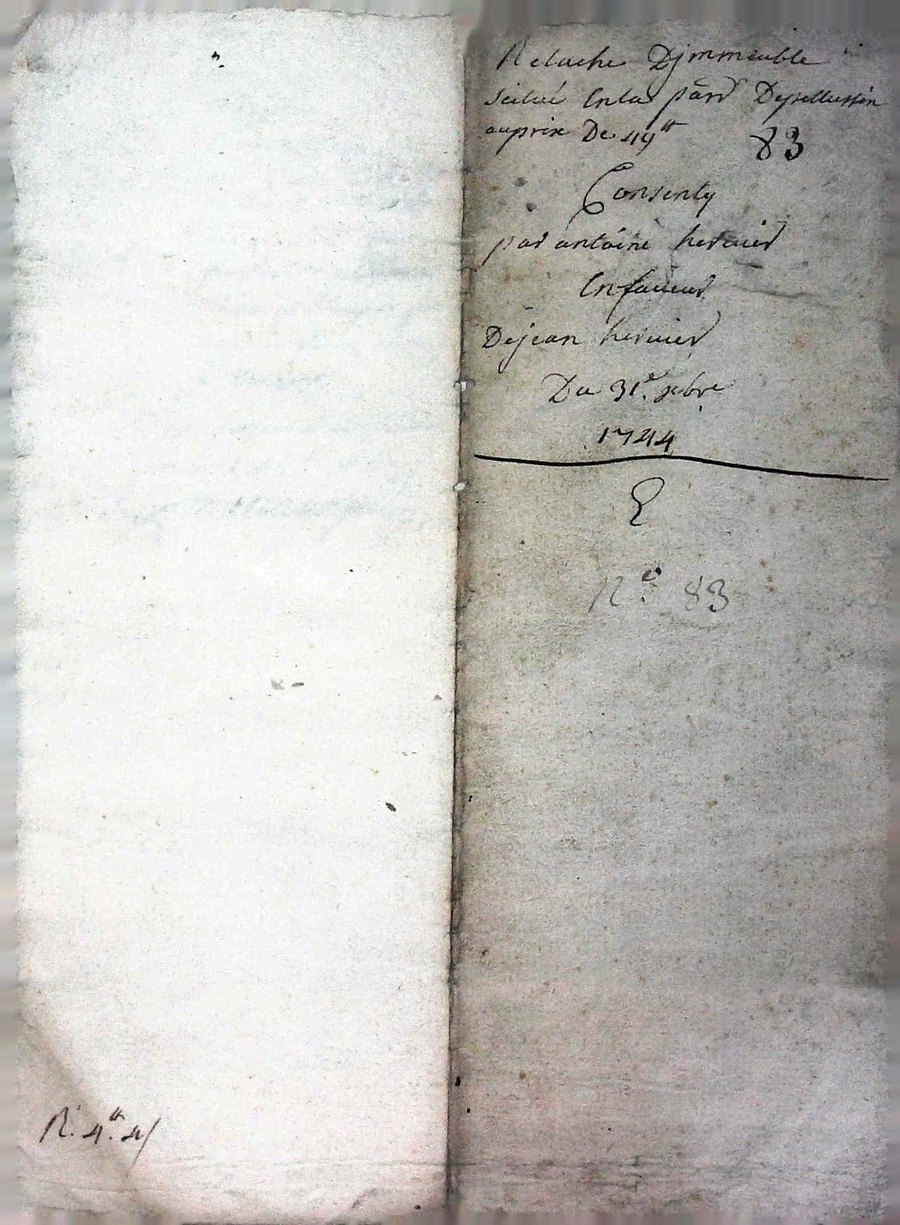 Relache Djmmeuble
scitué Enla parr Depellussin
auprix De 49tt 83
Consenty
par antoine hervier
Enfaveur
Dejean hervier
Du 31e xbre
1744
N.° 83
R. 4tt. 4s